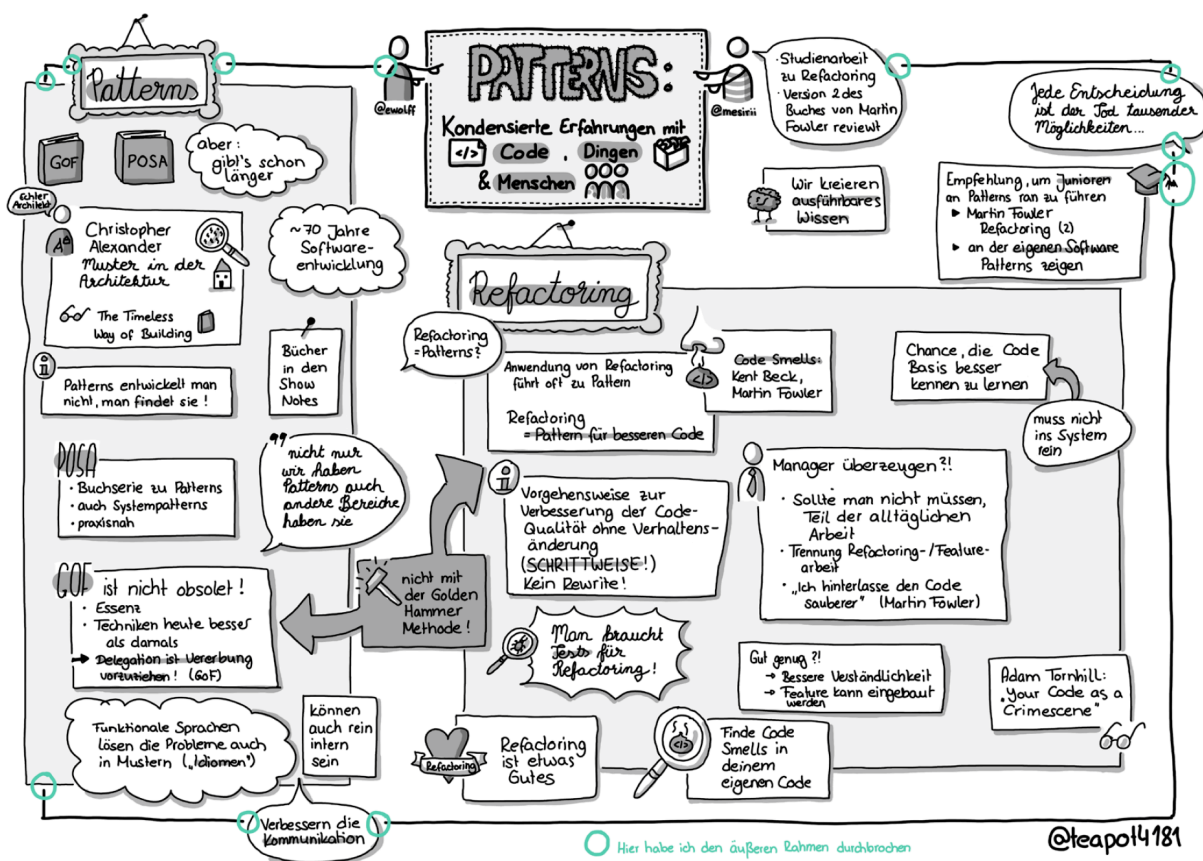 Patterns
GOF
POSA
aber:
gibt's schon
länger
Echter
Architekt
A
Christopher
Alexander
Muster in der
Architektur
The Timeless
Way of Building
~70 Jahre
Software-
entwicklung
Bücher
in den
Show
Notes
i
Patterns entwickelt man
nicht, man findet sie!
POSA
· Buchserie zu Patterns
· auch Systempatterns
· praxisnah
"
nicht nur
wir haben
Patterns auch
andere Bereiche
haben sie
GOF ist nicht obsolet!
· Essenz
· Techniken heute besser
als damals
→ Delegation ist Vererbung
vorzuziehen! (GoF)
nicht mit
der Golden
Hammer
Methode!
Funktionale Sprachen
lösen die Probleme auch
in Mustern („Idiomen")
können
auch rein
intern
sein
Verbessern die
Kommunikation
@ewolff
PATTERNS:
Kondensierte Erfahrungen mit
</> Code, Dingen
& Menschen
@mesirii
· Studienarbeit
zu Refactoring
· Version 2 des
Buches von Martin
Fowler reviewt
Jede Entscheidung
ist der Tod tausender
Möglichkeiten...
Wir kreieren
ausführbares
Wissen
Empfehlung, um Junioren
an Patterns ran zu führen
▸ Martin Fowler
Refactoring (2)
▸ an der eigenen Software
Patterns zeigen
Refactoring
Refactoring
=Patterns?
Anwendung von Refactoring
führt oft zu Pattern
Refactoring
= Pattern für besseren Code
</>
Code Smells:
Kent Beck,
Martin Fowler
Chance, die Code
Basis besser
kennen zu lernen
muss nicht
ins System
rein
i
Vorgehensweise zur
Verbesserung der Code-
Qualität ohne Verhaltens-
änderung
(SCHRITTWEISE!)
Kein Rewrite!
Manager überzeugen?!
· Sollte man nicht müssen,
Teil der alltäglichen
Arbeit
· Trennung Refactoring-/Feature-
arbeit
· „Ich hinterlasse den Code
sauberer" (Martin Fowler)
Man braucht
Tests für
Refactoring!
Gut genug?!
→ Bessere Verständlichkeit
→ Feature kann eingebaut
werden
Adam Tornhill:
"Your Code as a
Crimescene"
Refactoring
Refactoring
ist etwas
Gutes
</>
Finde Code
Smells in
deinem
eigenen Code
Hier habe ich den äußeren Rahmen durchbrochen
@teapot4181